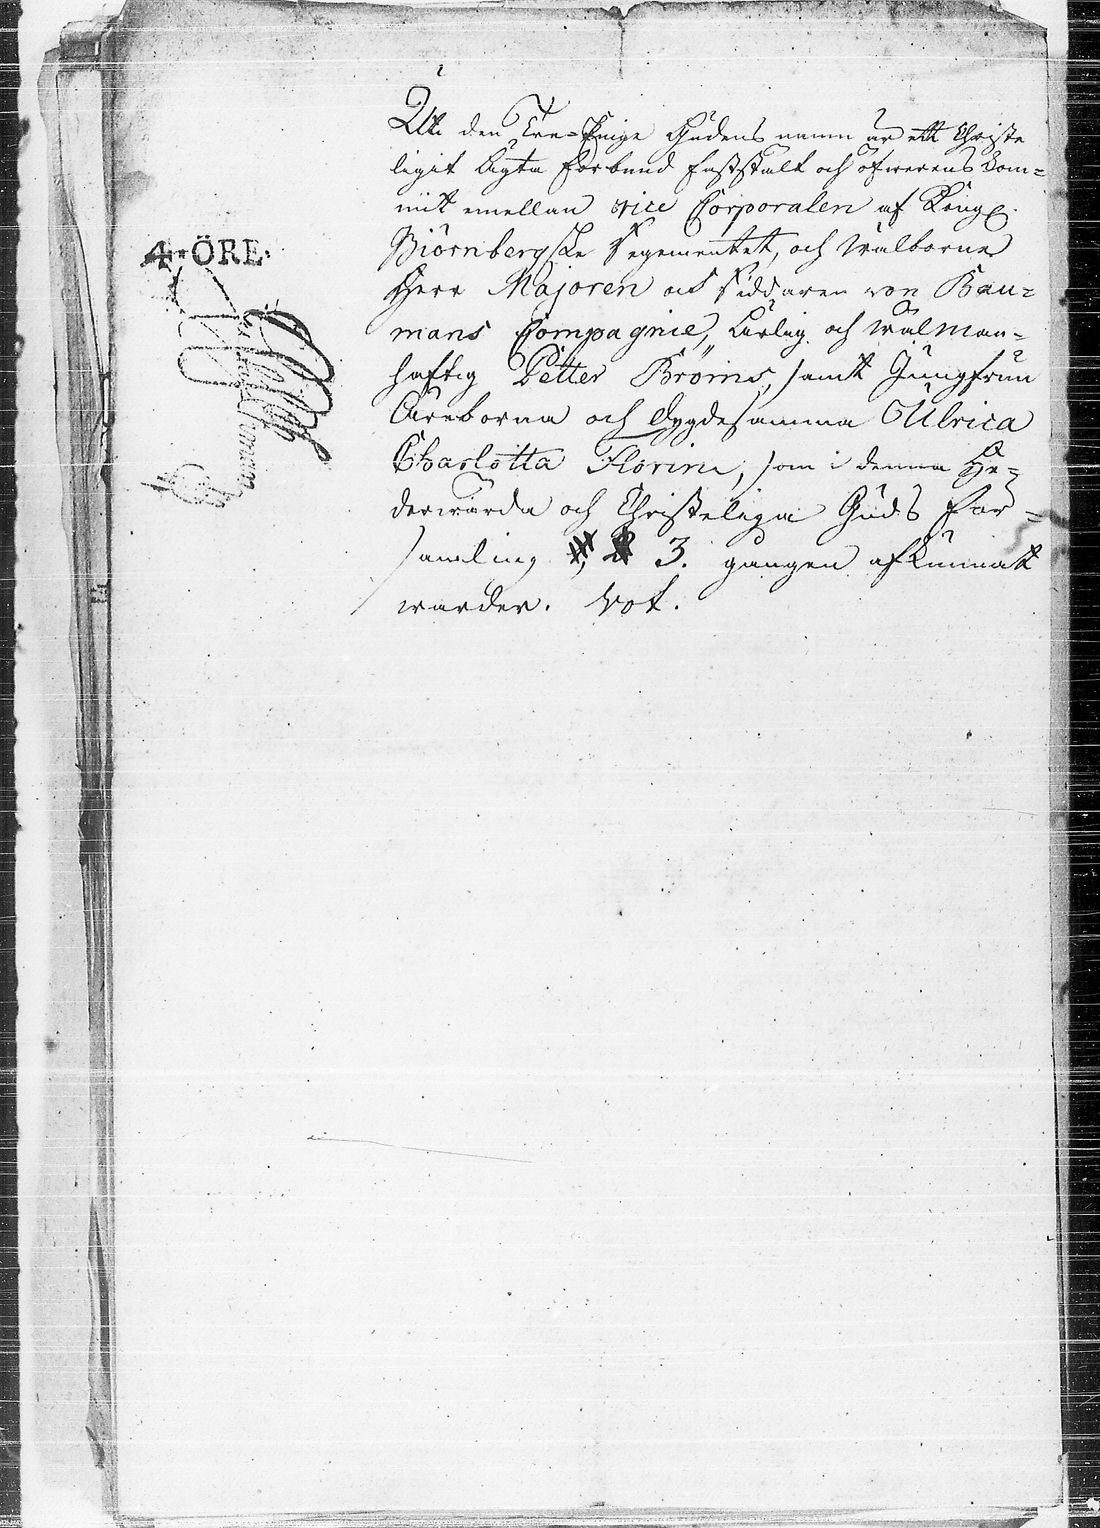 4. ÖRE.
Uti den Tre-Eniga Gudens namn är ett Christe
ligit Ägta förbund fastsält och öfwerens Kom=
mit emellan vice Corporalen af Kongl.
Biörnbergske Regementet, och Wälborne
Herr Majoren och Riddaren von Bau=
mans Compagnie, Ärlig och Wälman=
haftig Petter Bröms, samt Jungfrun
Äreborna och dygdesamma Ulrica
Charlotta Florin, som i denna He=
derwärda och Christeliga Guds för=
samling 3. gången afkunnat
warder. Vot.